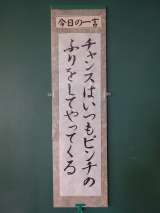 今日の一言
チャンスはいつもピンチの
ふりをしてやってくる